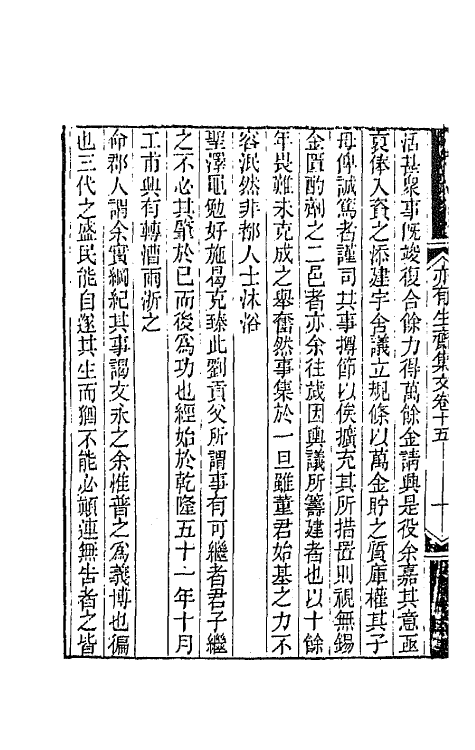 亦有生齋集文卷十五
十
活甚衆事旣竣復合餘力得萬餘金請興是役余嘉其意亟
裒俸入資之添建宇舍議立規條以萬金貯之質庫權其子
母俾誠篤者謹司其事撙節以俟擴充其所措置則視無錫
金匱酌劑之二邑者亦余往歲因輿議所籌建者也以十餘
年畏難未克成之舉奮然事集於一旦雖董君始基之力不
容泯然非都人士沐浴
聖澤黽勉好施曷克臻此劉貢父所謂事有可繼者君子繼
之不必其肇於已而後爲功也經始於乾隆五十一年十月
工甫興有轉漕兩浙之
命郡人謂余實綱紀其事謁文永之余惟普之爲義博也徧
也三代之盛民能自遂其生而猶不能必顛連無告者之皆